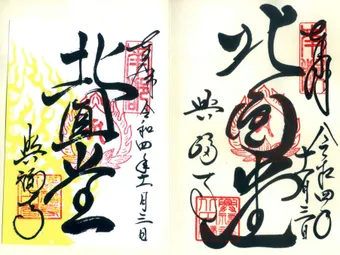 奉拝
令和四年十一月三日
北円堂
興福寺
奉拝
令和四年十一月三日
北円堂
興福寺